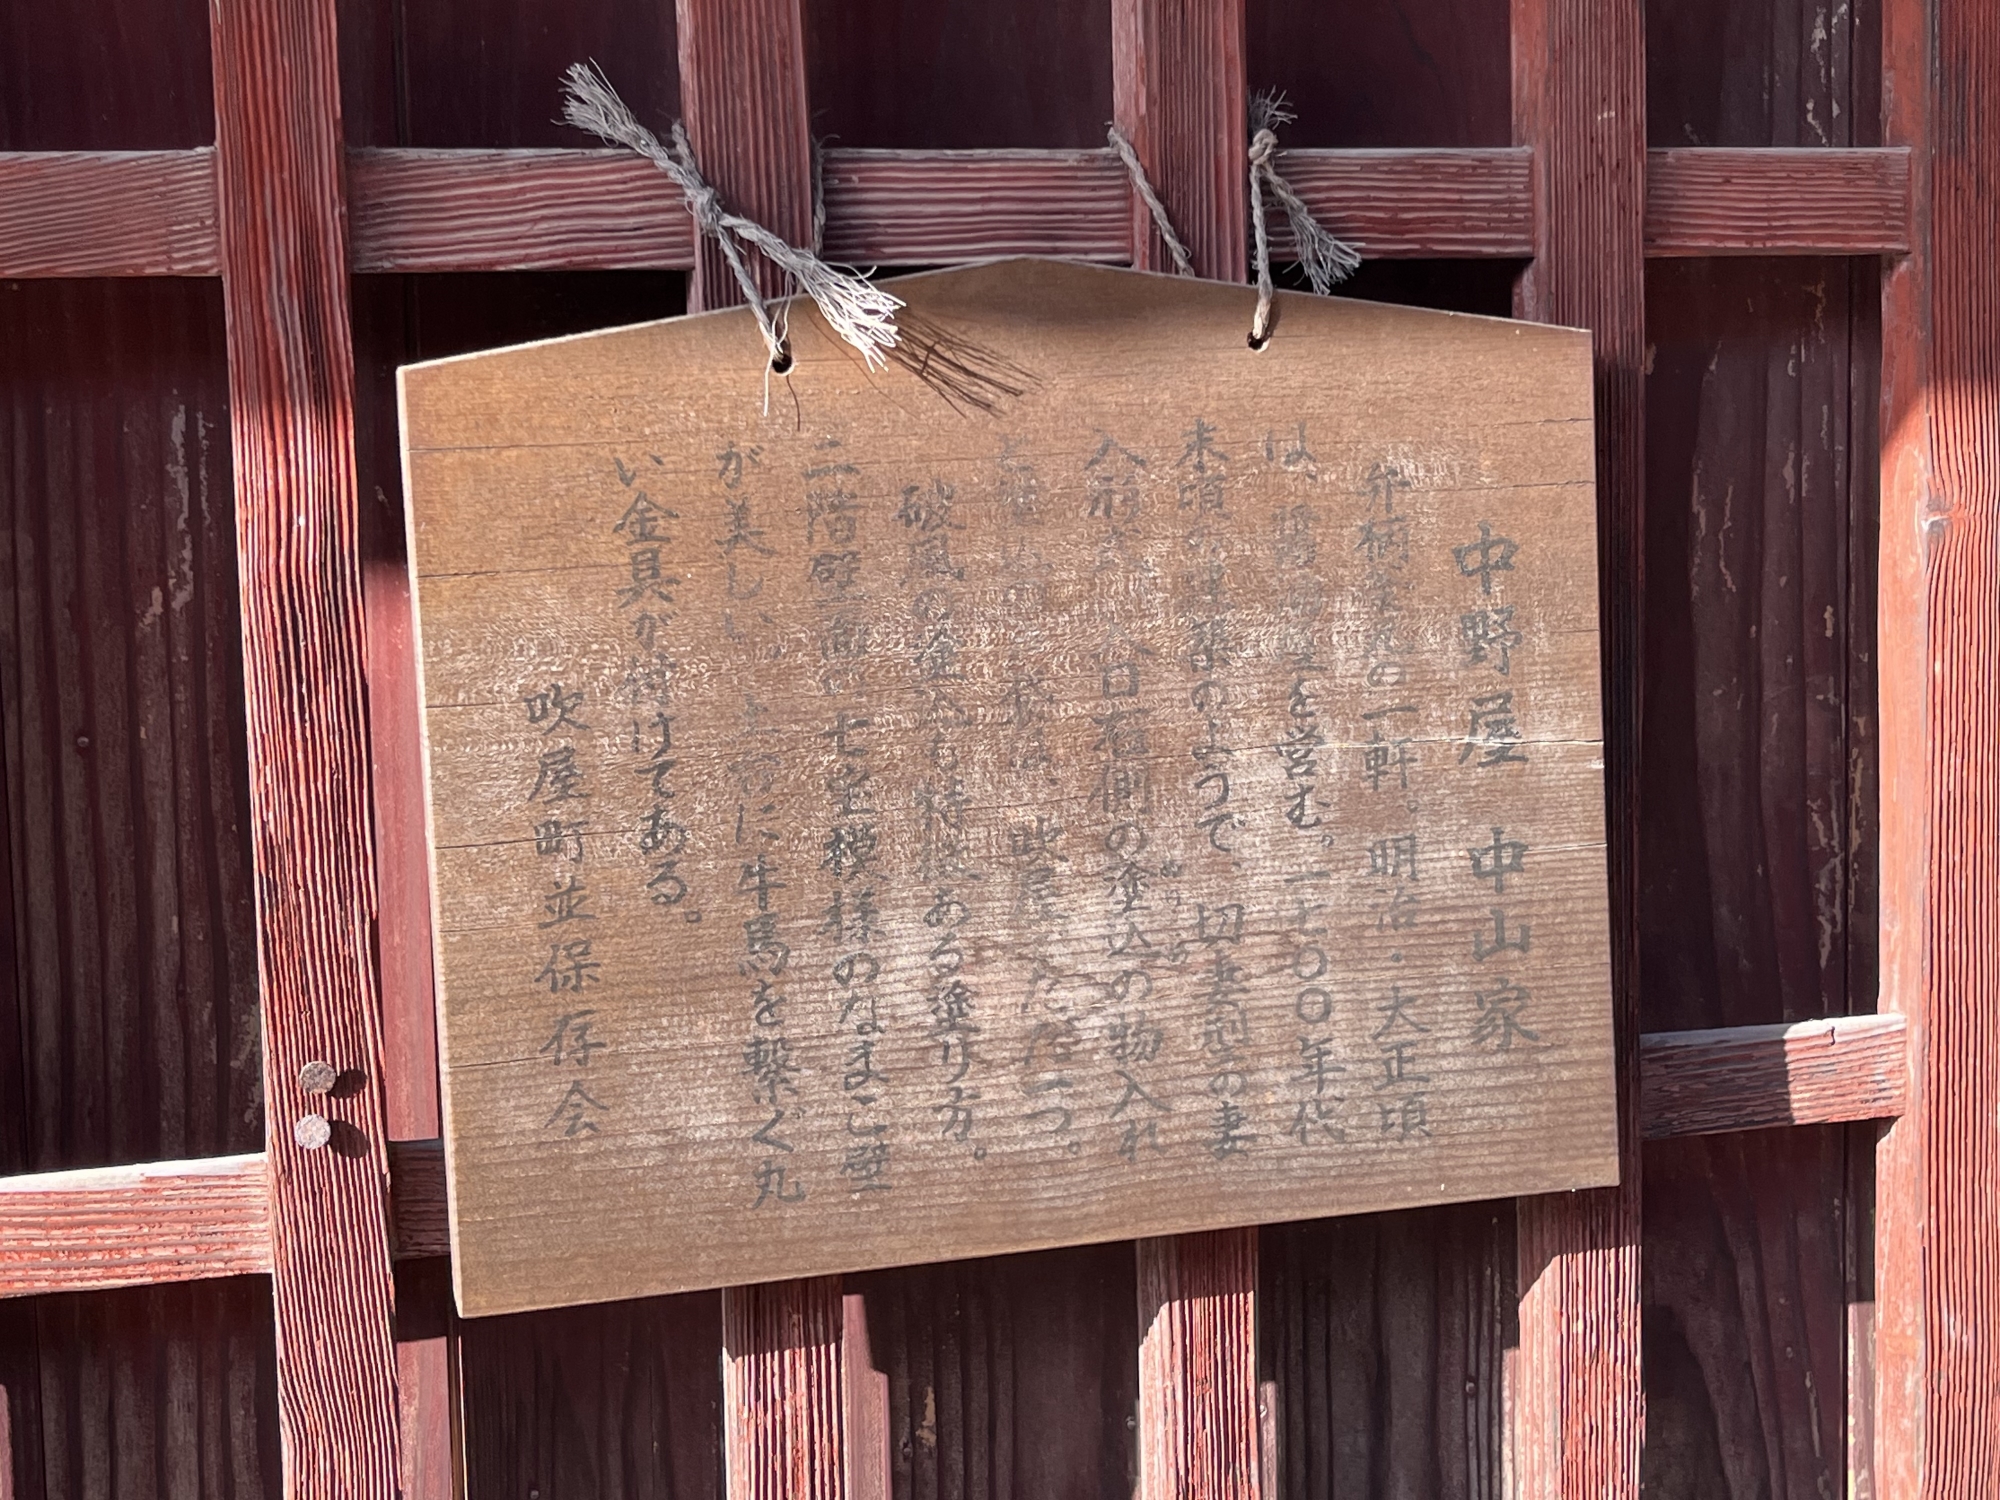 中野屋 中山家
弁柄 の一軒。明治・大正頃
は、醤油 を営む。一七〇〇年代
末頃の建築のようで、切妻型の妻
入形式 入口右側の塗込の物入れ
は、吹屋でただ一つ。
破風の も特徴ある塗り方。
二階壁面の七宝模様のなまこ壁
が美しい。 に牛馬を繋ぐ丸
い金具が付けてある。
吹屋町並保存会